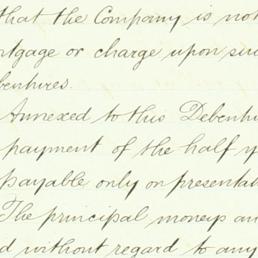 that the Company is not
rtgage or charge upon suc
bentures.
Annexed to this Debentu
payment of the half y
payable only on presentat
The principal moneys an
d without regard to any